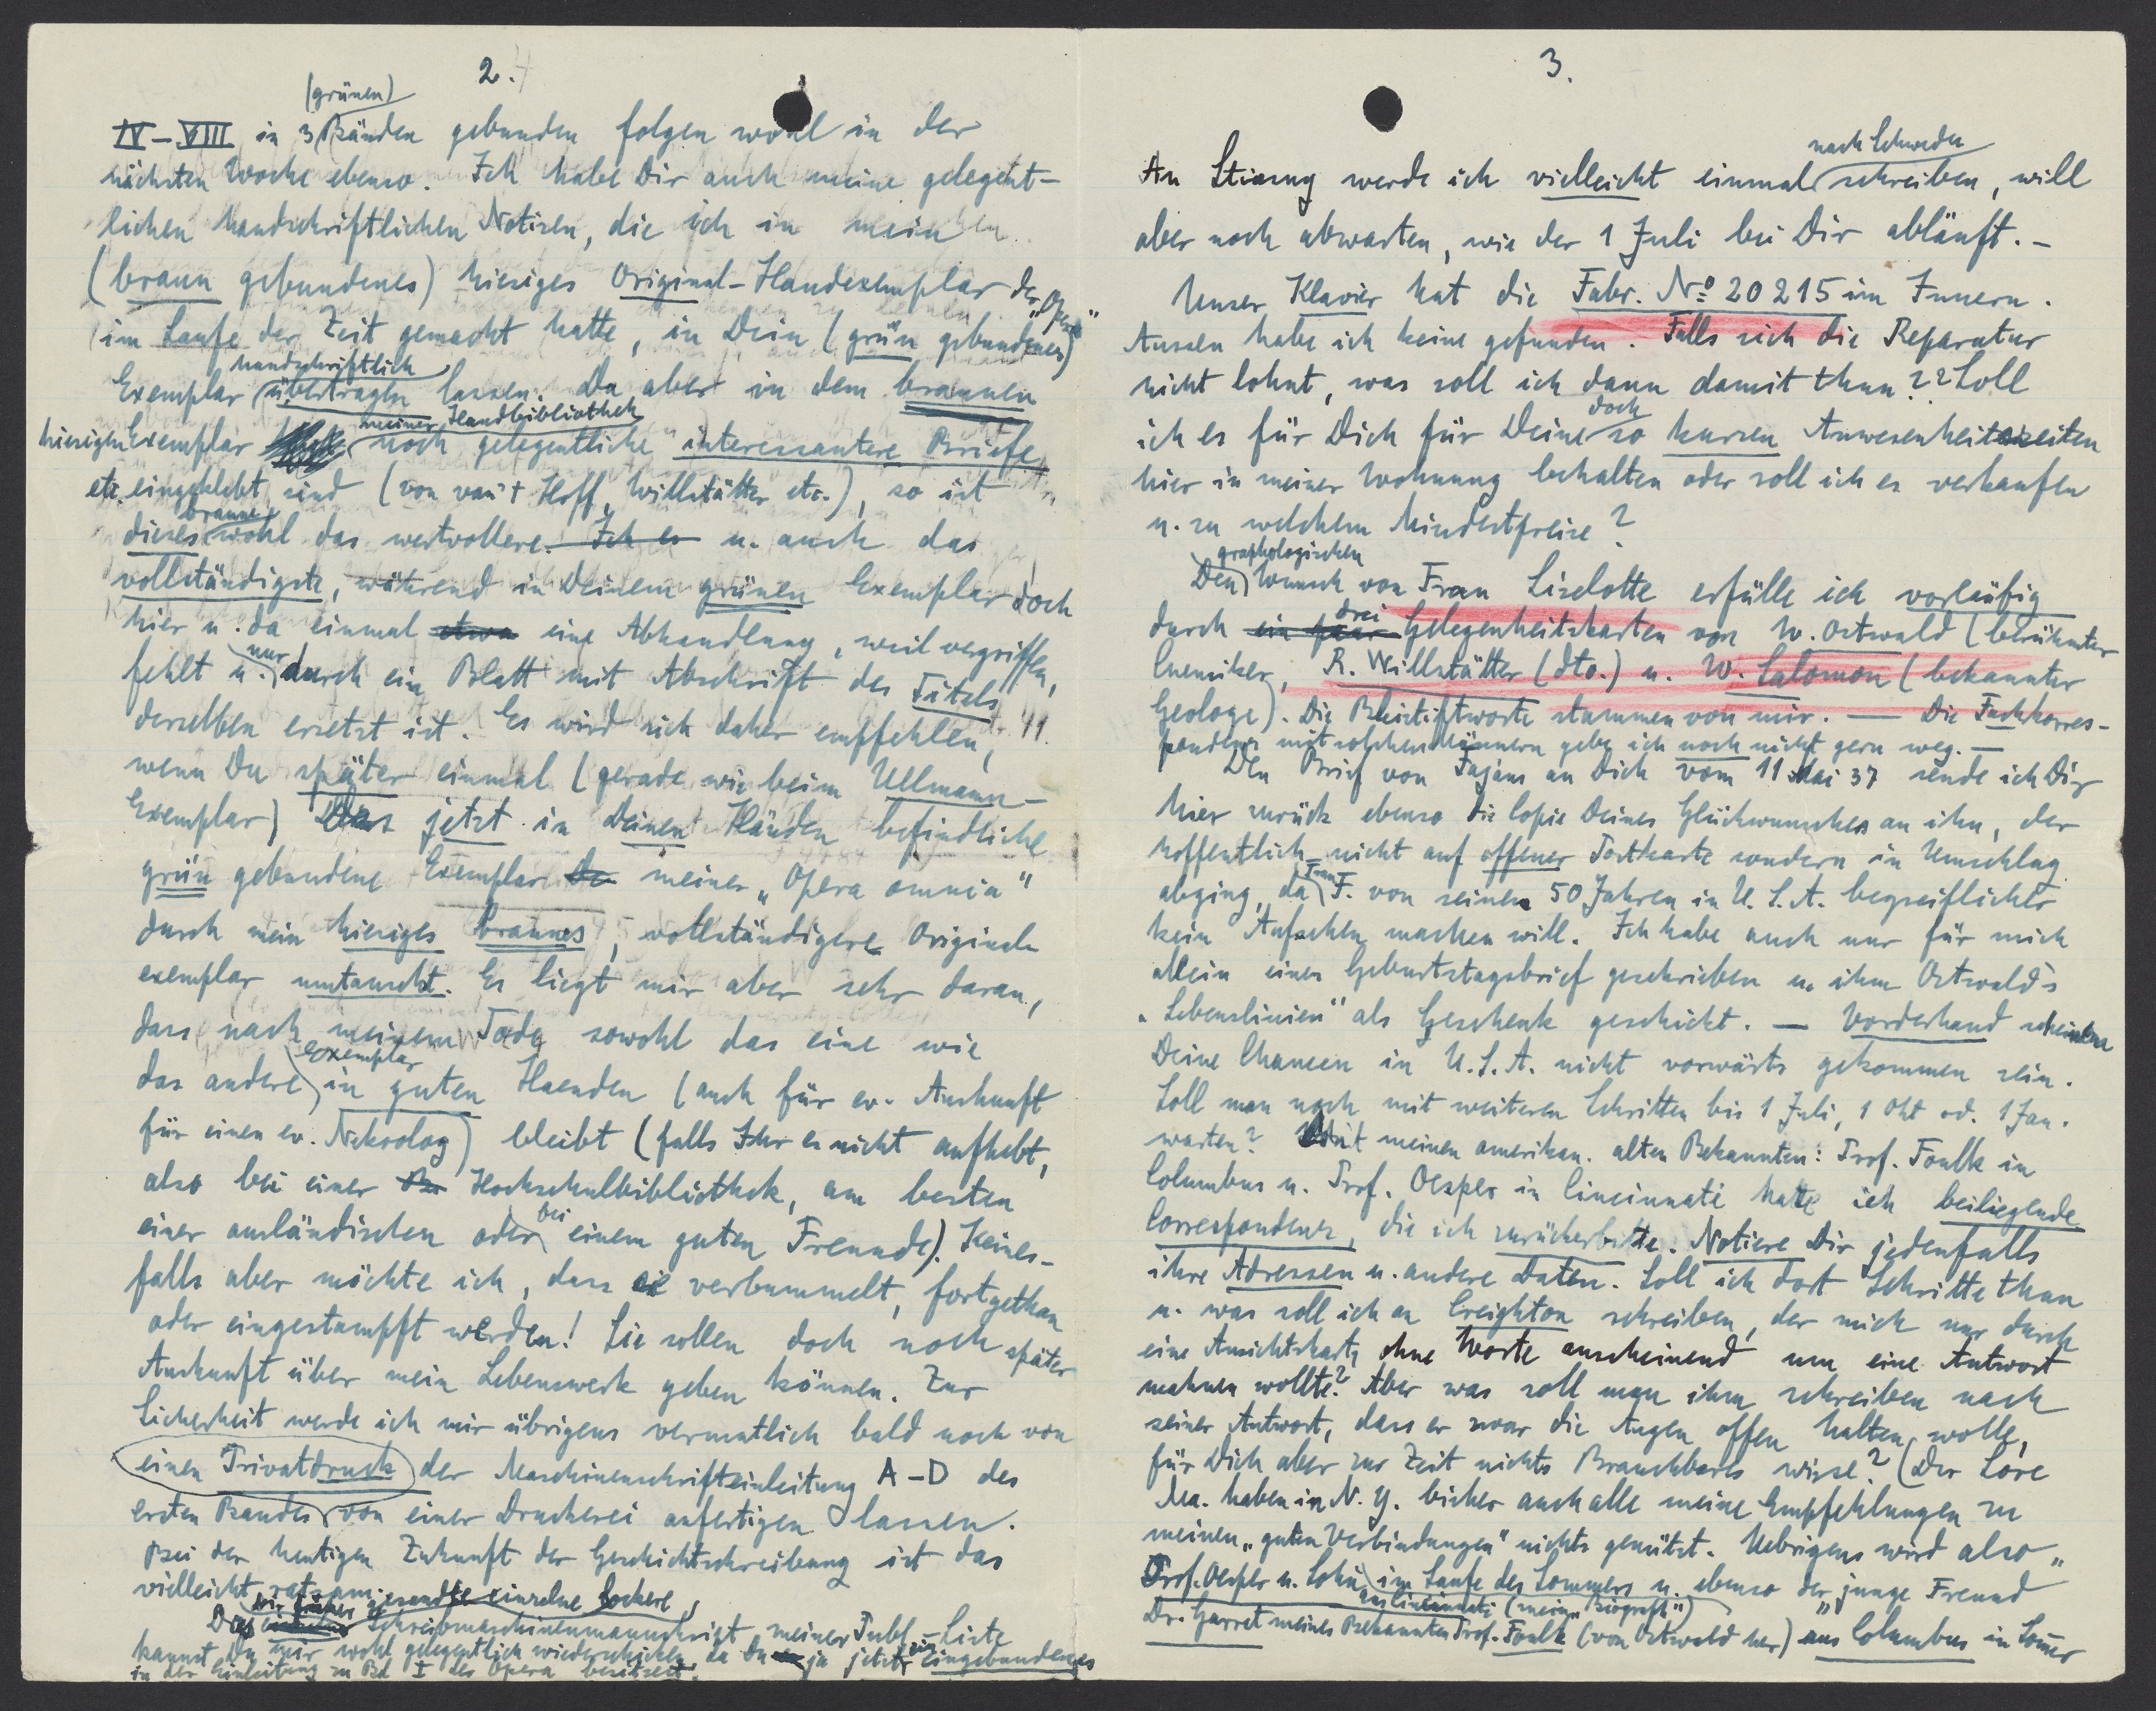 2.
(grünen)
IV–VIII in 3 Bänden gebunden folgen wohl in der
nächsten Woche ebenso. Ich habe Dir auch meine gelegent-
lichen handschriftlichen Notizen, die ich in mein
(braun gebundenes) hiesiges Original-Handexemplar der „Opera"
im Laufe der Zeit gemacht hatte, in Dein (grün gebundenes)
handschriftlich
Exemplar übertragen lassen. Da aber in dem braunen
meiner Handbibliothek
hiesigen Exemplar noch gelegentliche interessantere Briefe
etc. eingeklebt sind (von van't Hoff, Willstätter etc.), so ist
braune
dieses wohl das wertvollere. Ich es u. auch das
vollständigste, während in Deinem grünen Exemplar doch
hier u. da einmal etwa eine Abhandlung, weil vergriffen,
nur
fehlt u. durch ein Blatt mit Abschrift des Titels
derselben ersetzt ist. Es wird sich daher empfehlen,
wenn Du später einmal (gerade wie beim Ullmann-
Exemplar) Das jetzt in Deinen Händen befindliche
grün gebundene Exemplar meiner „Opera omnia"
durch mein hiesiges braunes, vollständigeres Original-
exemplar umtauscht. Es liegt mir aber sehr daran,
dass nach meinem Tode sowohl das eine wie
Exemplar
das andere in guten Haenden (auch für ev. Auskunft
für einen ev. Nekrolog) bleibt (falls Ihr es nicht aufhebt,
also bei einer Hochschulbibliothek, am besten
bei
einer ausländischen oder einem guten Freunde). Keines-
falls aber möchte ich, dass sie verbummelt, fortgethan
oder eingestampft werden! Sie sollen doch noch später
Auskunft über mein Lebenswerk geben können. Zur
Sicherheit werde ich mir übrigens vermutlich bald noch von
einen Privatdruck der Maschinenschrifteinleitung A–D des
ersten Bandes von einer Druckerei anfertigen lassen.
Bei der heutigen Zukunft der Geschichtschreibung ist das
vielleicht ratsam.
Dir früher gesandte einzelne lockere
Das Schreibmaschinenmanuskript meiner Publ.-Liste
kannst Du mir wohl gelegentlich wiederschicken, da Du ja jetzt ein eingebundenes
in der Einleitung zu Bd I des Opera besitzest.
3.
nach Schweden
An Stiasny werde ich vielleicht einmal schreiben, will
aber noch abwarten, wie der 1 Juli bei Dir abläuft. –
Unser Klavier hat die Fabr. No 20215 im Innern.
Aussen habe ich keine gefunden. Falls sich die Reparatur
nicht lohnt, was soll ich dann damit thun?? Soll
doch
ich es für Dich für Deine so kurzen Anwesenheitszeiten
hier in meiner Wohnung behalten oder soll ich es verkaufen
u. zu welchem Mindestpreise?
graphologischen
Den Wunsch von Frau Liselotte erfülle ich vorläufig
drei
durch ein paar Gelegenheitskarten von W. Ostwald (berühmter
Chemiker, R. Willstätter (dto.) u. W. Salomon (bekannter
Geologe). Die Bleistiftworte stammen von mir. — Die Fachkorres-
pondenz mit solchen Männern gebe ich noch nicht gern weg. —
Den Brief von Fajans an Dich vom 11 Mai 37 sende ich Dir
hier zurück ebenso die Copie Deines Glückwunsches an ihn, der
hoffentlich nicht auf offener Postkarte sondern in Umschlag
abging, da F. von seinen 50 Jahren in U.S.A. begreiflicher
kein Aufsehen machen will. Ich habe auch nur für mich
allein einen Geburtstagsbrief geschrieben u. ihm Ostwald's
„Lebenslinien" als Geschenk geschickt. — Vorderhand scheinen
Deine Chancen in U.S.A. nicht vorwärts gekommen sein.
Soll man noch mit weiteren Schritten bis 1 Juli, 1 Okt od. 1 Jan.
warten? Mit meinen amerikan. alten Bekannten: Prof. Foulk in
Columbus u. Prof. Oesper in Cincinnati hatte ich beiliegende
Correspondenz, die ich zurückerbitte. Notiere Dir jedenfalls
ihre Adressen u. andere Daten. Soll ich dort Schritte thun
u. was soll ich an Creighton schreiben, der mich nur durch
eine Ansichtskarte ohne Worte anscheinend um eine Antwort
mahnen wollte? Aber was soll man ihm schreiben nach
seiner Antwort, dass er zwar die Augen offen halten wolle,
für Dich aber zur Zeit nichts Brauchbares wisse? (Der Lore
Ma. haben in N.Y. bisher auch alle meine Empfehlungen zu
meinen „guten Verbindungen" nichts genützt. Uebrigens wird also
Prof. Oesper u. Sohn im Laufe des Sommers u. ebenso der „junge Freund
aus Cincinnati (mein „Biograph")
Dr. Garret meines Bekannten Prof. Foulk (von Ostwald her) aus Columbus in Som̅er